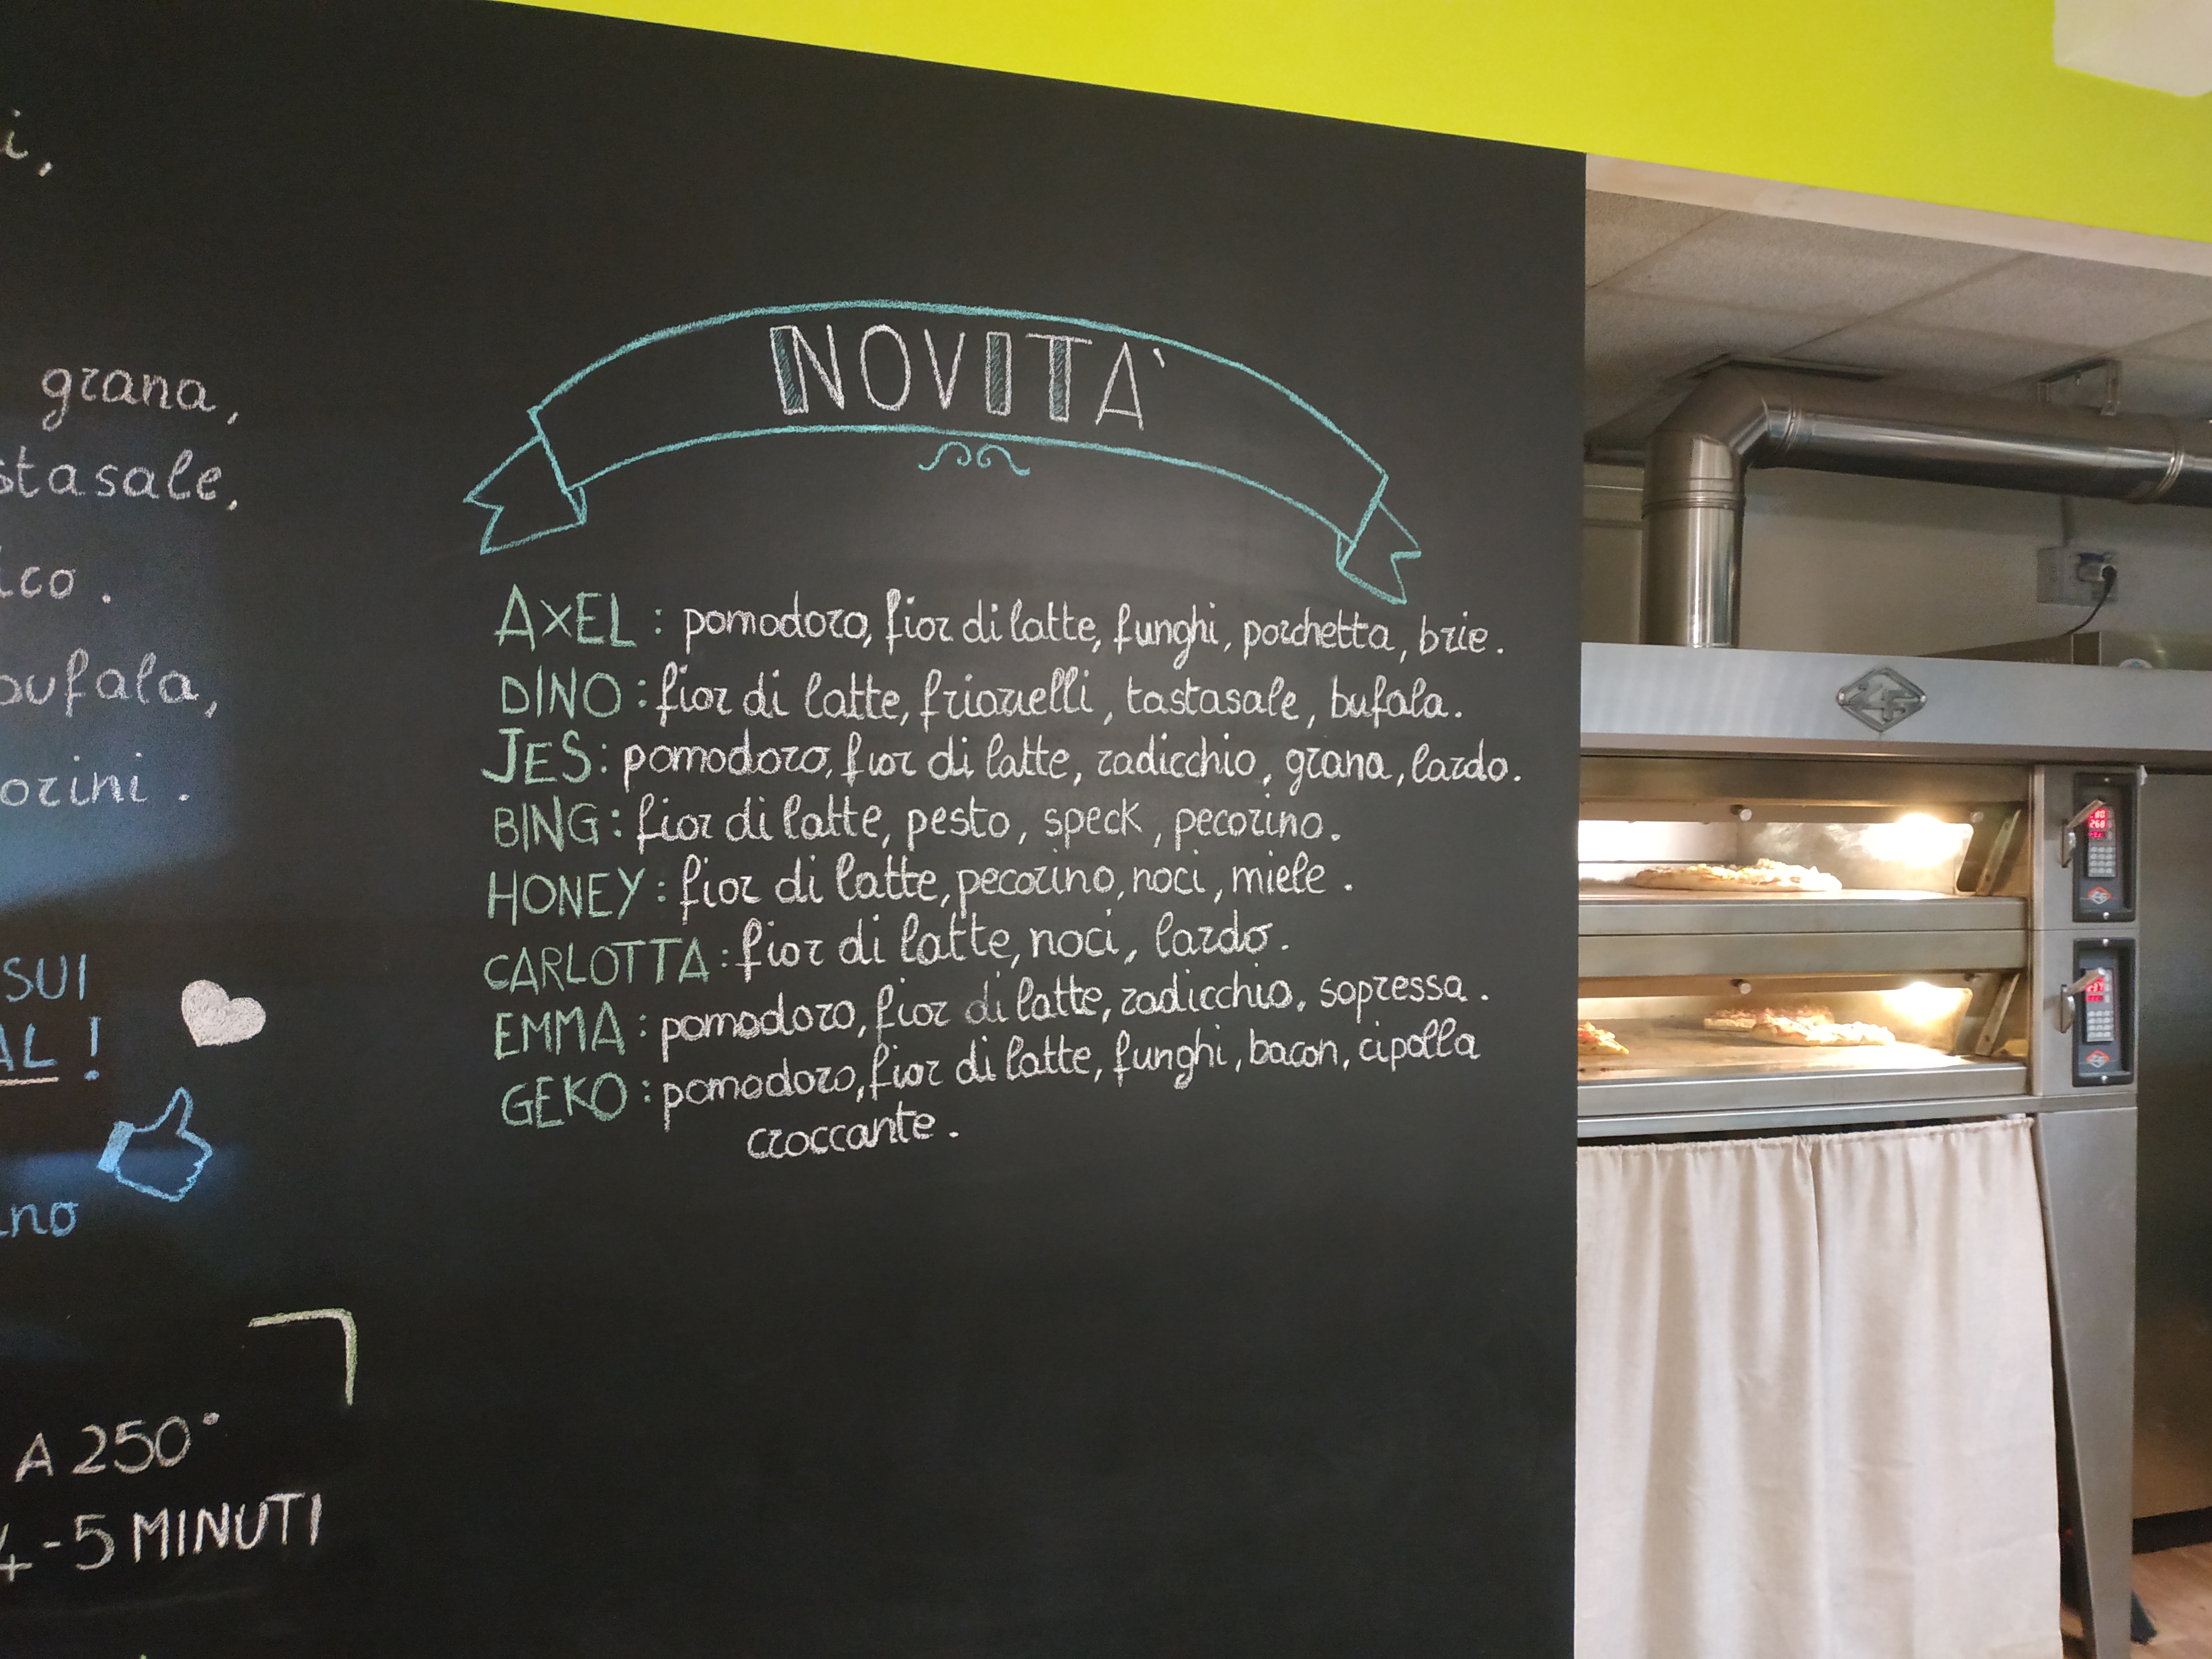 grana,
bufala,
SUI
A 250°
4-5 MINUTI
NOVITÀ
AXEL: pomodoro, fior di latte, funghi, porchetta, brie.
DINO: fior di latte, friarielli, tastasale, bufala.
JES: pomodoro, fior di latte, radicchio, grana, lardo.
BING: fior di latte, pesto, speck, pecorino.
HONEY: fior di latte, pecorino, noci, miele.
CARLOTTA: fior di latte, noci, lardo.
EMMA: pomodoro, fior di latte, radicchio, sopressa.
GEKO: pomodoro, fior di latte, funghi, bacon, cipolla
croccante.